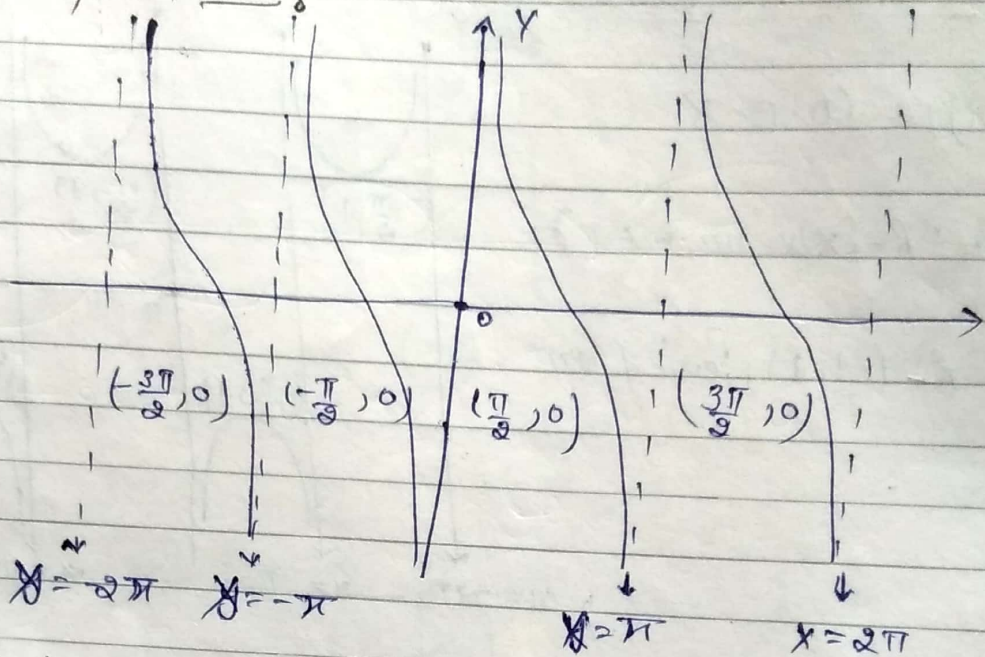 Y
0
(-3π/2, 0) (-π/2, 0) (π/2, 0) (3π/2, 0)
x = -2π x = -π x = π x = 2π